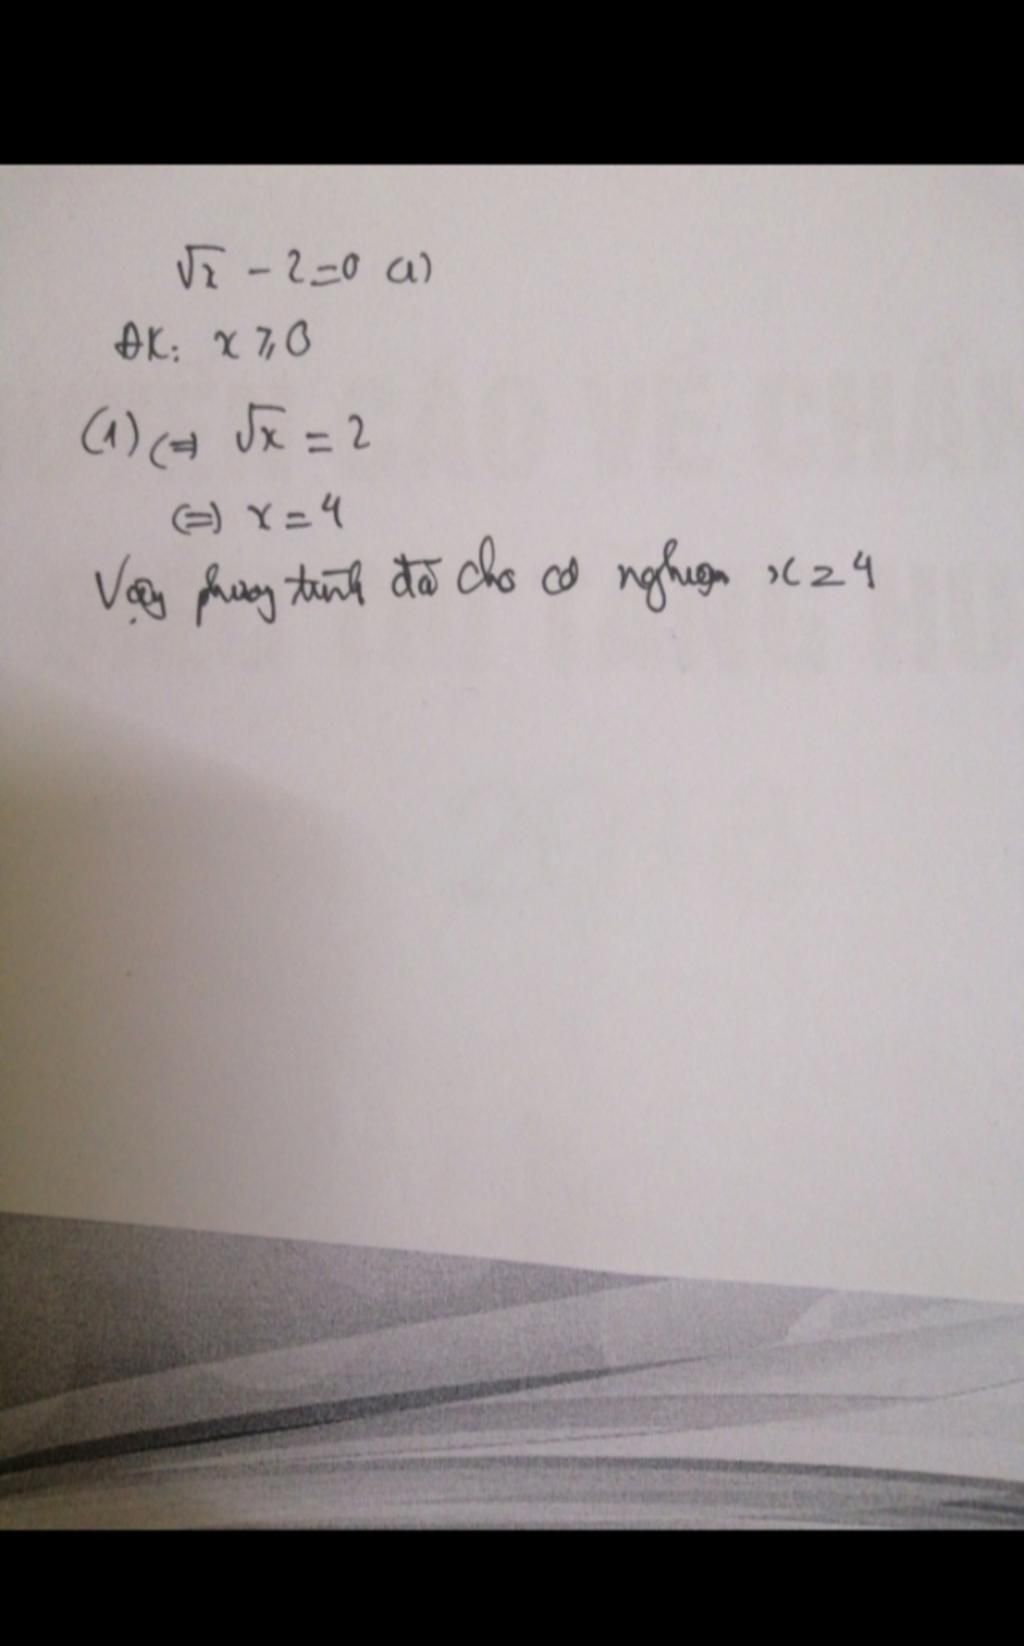 √x - 2 = 0 (1)
ĐK: x ≥ 0
(1) (=) √x = 2
(=) x = 4
Vậy phương trình đã cho có nghiệm x = 4